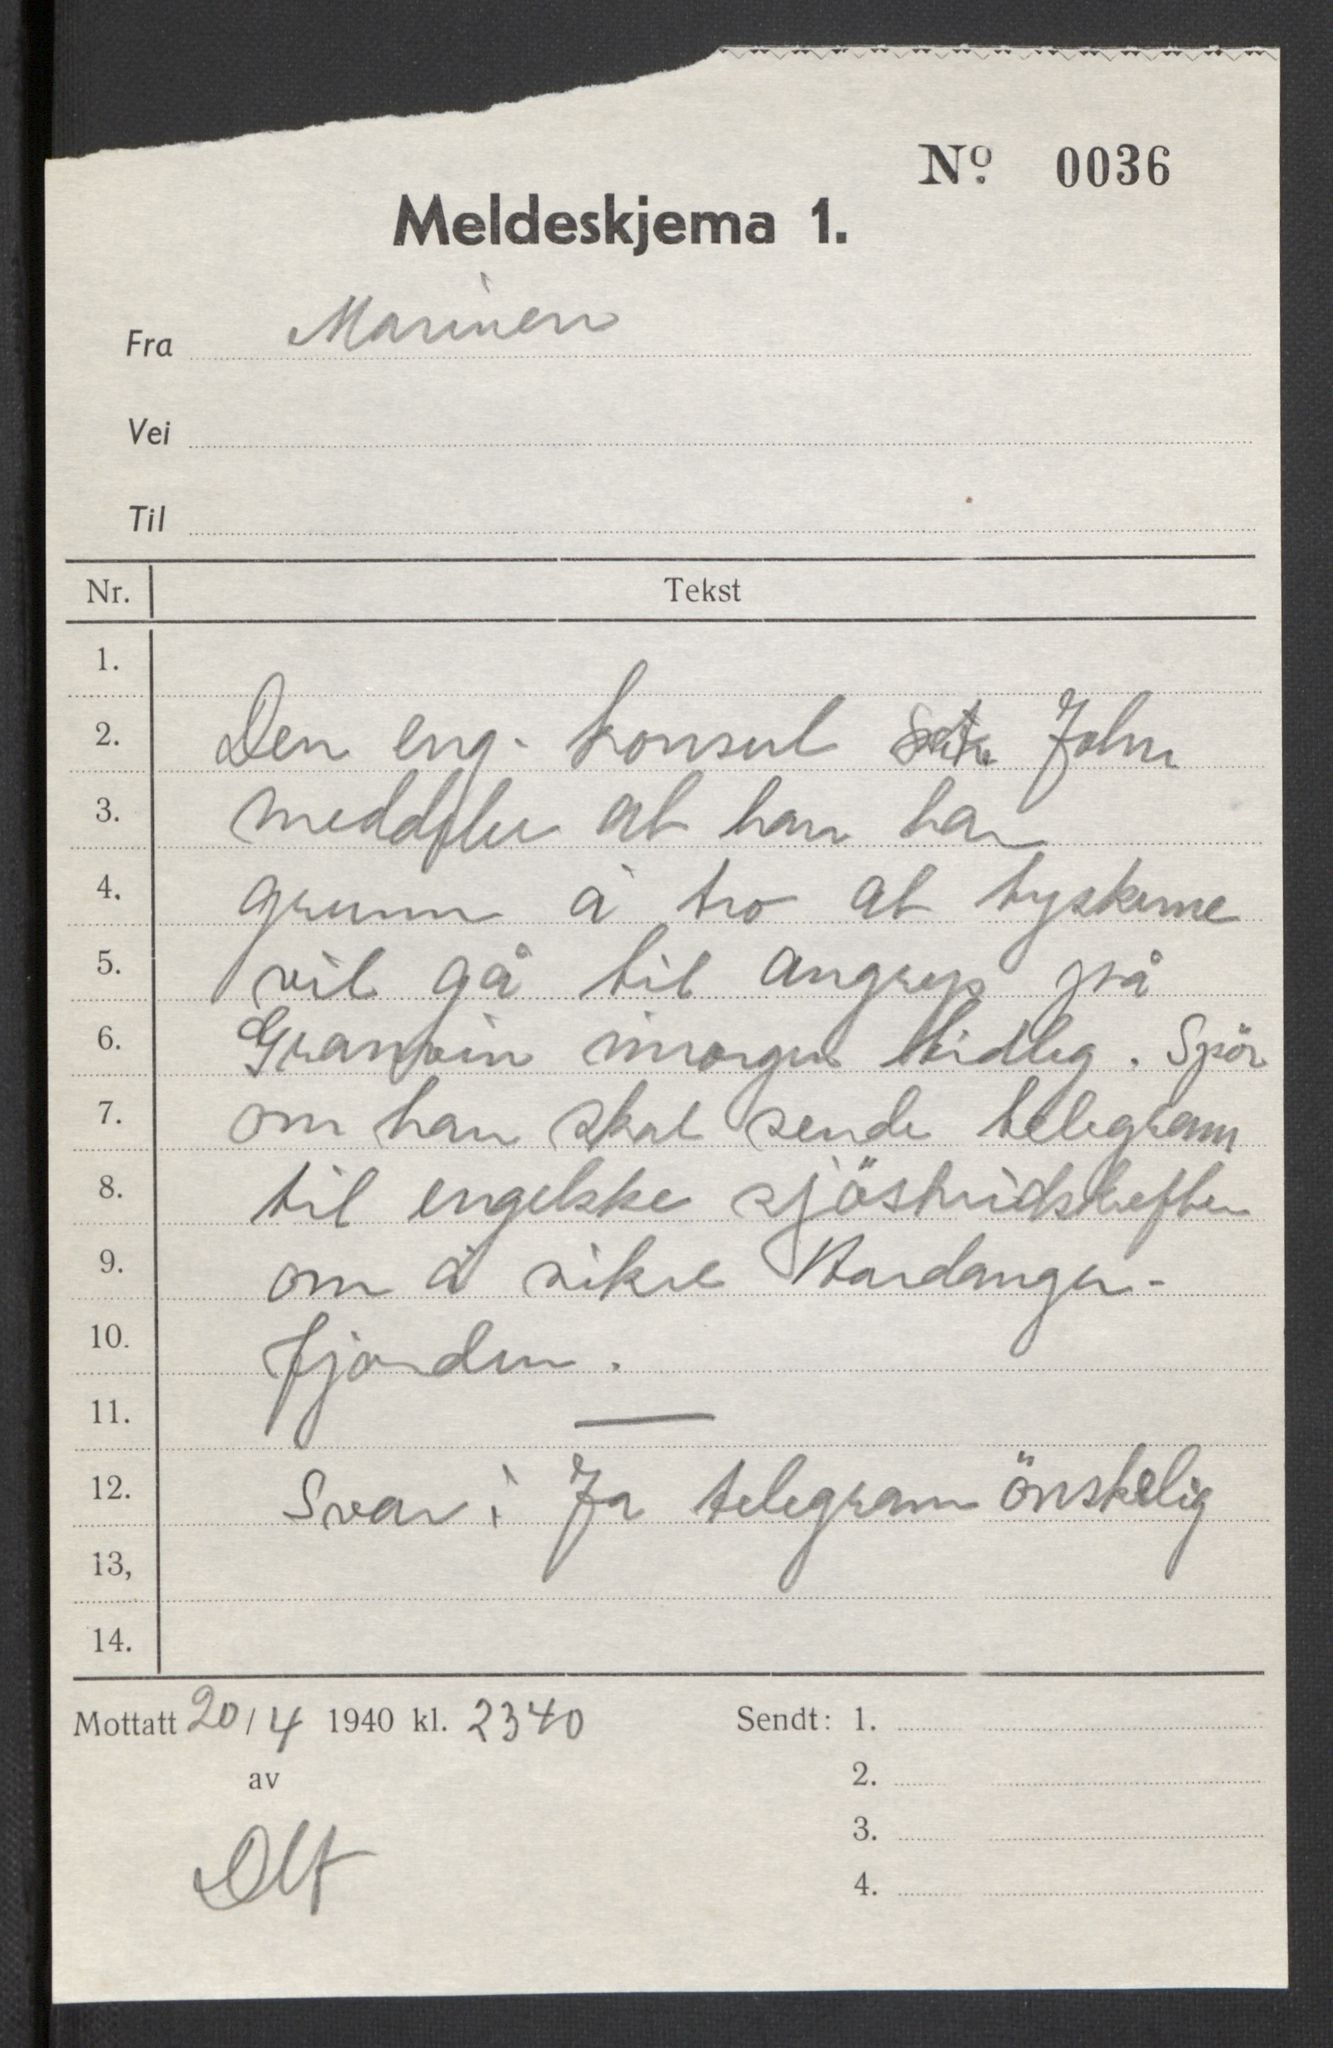 Nº 0036
Meldeskjema 1.
Fra Marinen
Vei
Til
Nr. Tekst
1.
2. Den eng. konsul John
3. meddeler at han har
4. grunn å tro at tyskerne
5. vil gå til angrep på
6. Granvin imorgen tidlig. Spör
7. om han skal sende telegram
8. til engelske sjöstridskrefter
9. om å sikre Hardanger-
10. fjorden.
11.
12. Svar: Ja telegram önskelig
13,
14.
Mottatt 20/4 1940 kl. 2340 Sendt: 1.
av 2.
3.
4.